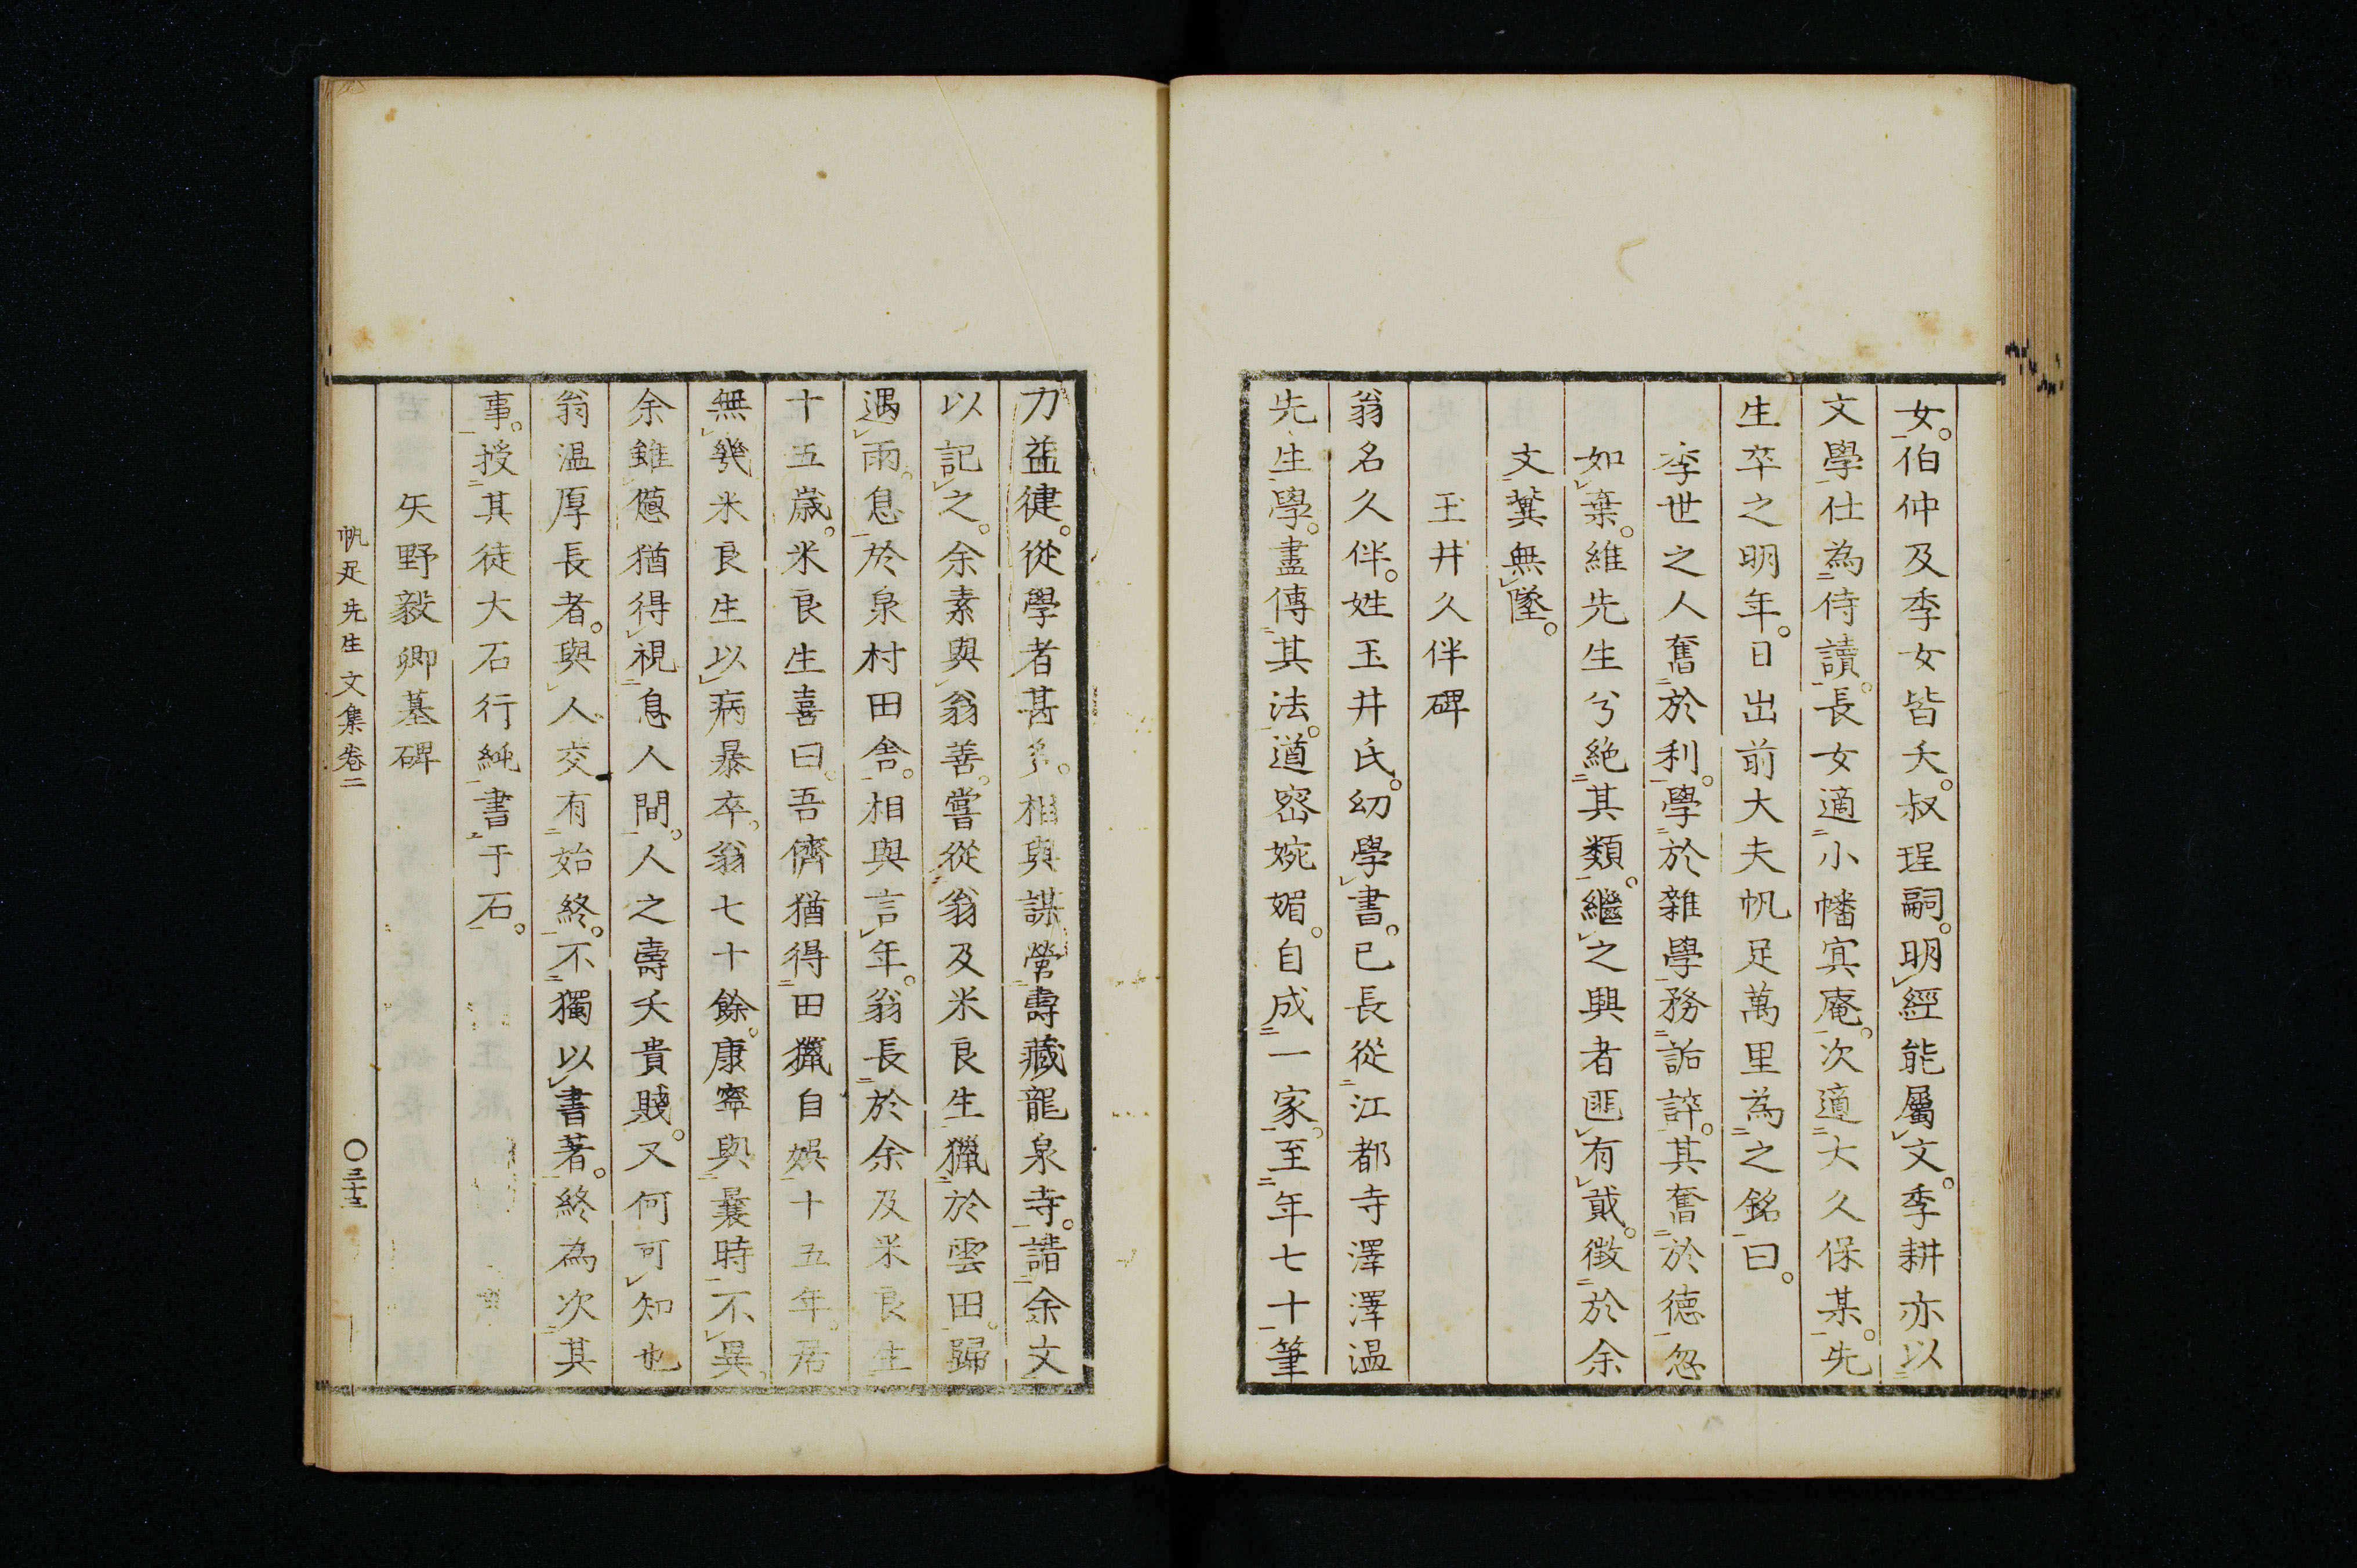 女。伯仲及季女皆夭。叔珵嗣。明經能屬文。季耕亦以
文學仕為侍讀。長女適小幡寅庵。次適大久保某。先
生卒之明年。日出前大夫帆足萬里為之銘曰。
季世之人奮於利。學於雜學務詬誶。其奮於德忽
如棄。維先生兮絶其類。繼之興者匪有貳。徴於余
文冀無墜。
玉井久伴碑
翁名久伴。姓玉井氏。幼學書。已長從江都寺澤澤温
先生學。盡傳其法。道密婉媚。自成一家。至年七十筆
力益健。從學者甚多。相與謀營壽藏龍泉寺。請余文
以記之。余素與翁善。嘗從翁及米良生獵於雲田。歸
遇雨。息於泉村田舍。相與言年。翁長於余及米良生
十五歳。米良生喜曰。吾儕猶得田獵自娯十五年。居
無幾米良生以病暴卒。翁七十餘。康寧與曩時不異。
余雖憊猶得視息人間。人之壽夭貴賤。又何可知也
翁温厚長者。與人交有始終。不獨以書著。終為次其
事。授其徒大石行純書于石。
矢野毅卿墓碑
帆足先生文集卷二
〇三十三